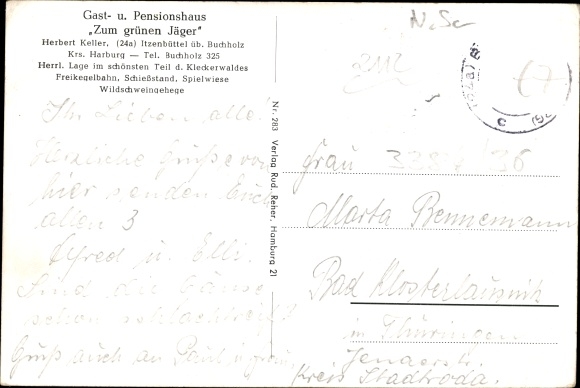 Gast- u. Pensionshaus
„Zum grünen Jäger"
Herbert Keller, (24a) Itzenbüttel üb. Buchholz
Krs. Harburg — Tel. Buchholz 325
Herrl. Lage im schönsten Teil d. Kleckerwaldes
Freikegelbahn, Schießstand, Spielwiese
Wildschweingehege
Ihr Lieben alle!
Herzliche Grüße von
hier senden Euch
allen 3
Alfred u. Elli.
Sind die Gänse
schon schlachtreif?
Gruß auch an Paul u.
Nr. 283 Verlag Rud. Reher, Hamburg 21
N. Sa
2112
(7)
c
Frau
36
Marta Bennemann
Bad Klosterlausnitz
in Thüringen
Jenaerstr.
Kreis Stadtroda.